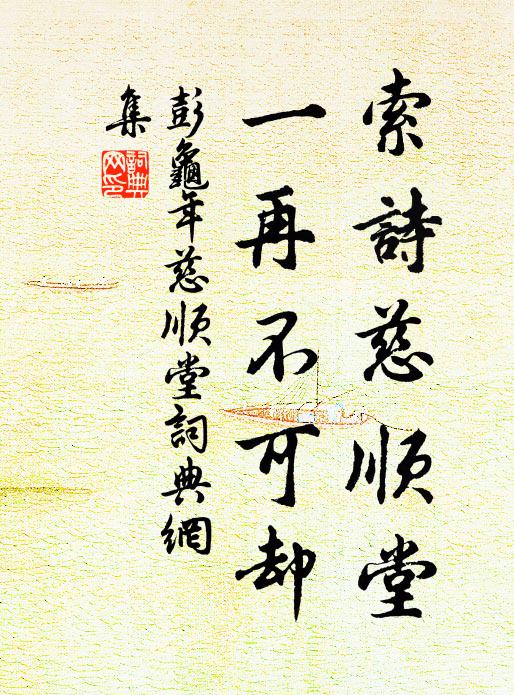 索詩慈順堂
一再不可却
彭龜年慈順堂詞典網
集
詞典
网印